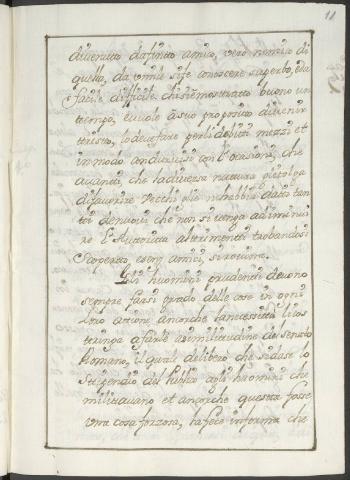 11
divenuto da finto amico, vero nemico di
quello, da umile si fe conoscere superbo, e da
facile difficile. chi si è mostrato buono un
tempo, e vuole a suo proposito divenir
tristo, lo deve fare per li debiti mezzi et
in modo condursi con l'occasioni, che
avanti, che la diversa natura gli tolga
di favorire vecchi gli n'habbia dati tan
ti de nuovi che non si venga a diminui
re l'Autorità altrimenti trobandosi
scoperto, e senz amici, si rovina.
Gli huomini prudenti devono
sempre farsi grado delle cose in ogni
loro attione ancorche la necessità li cos
tringa a farle a similitudine del senato
Romano, il quale deliberò che si dasse lo
stipendio del publico agli huomini che
militavano et ancorche questa fosse
una cosa forzosa, la fece in forma che